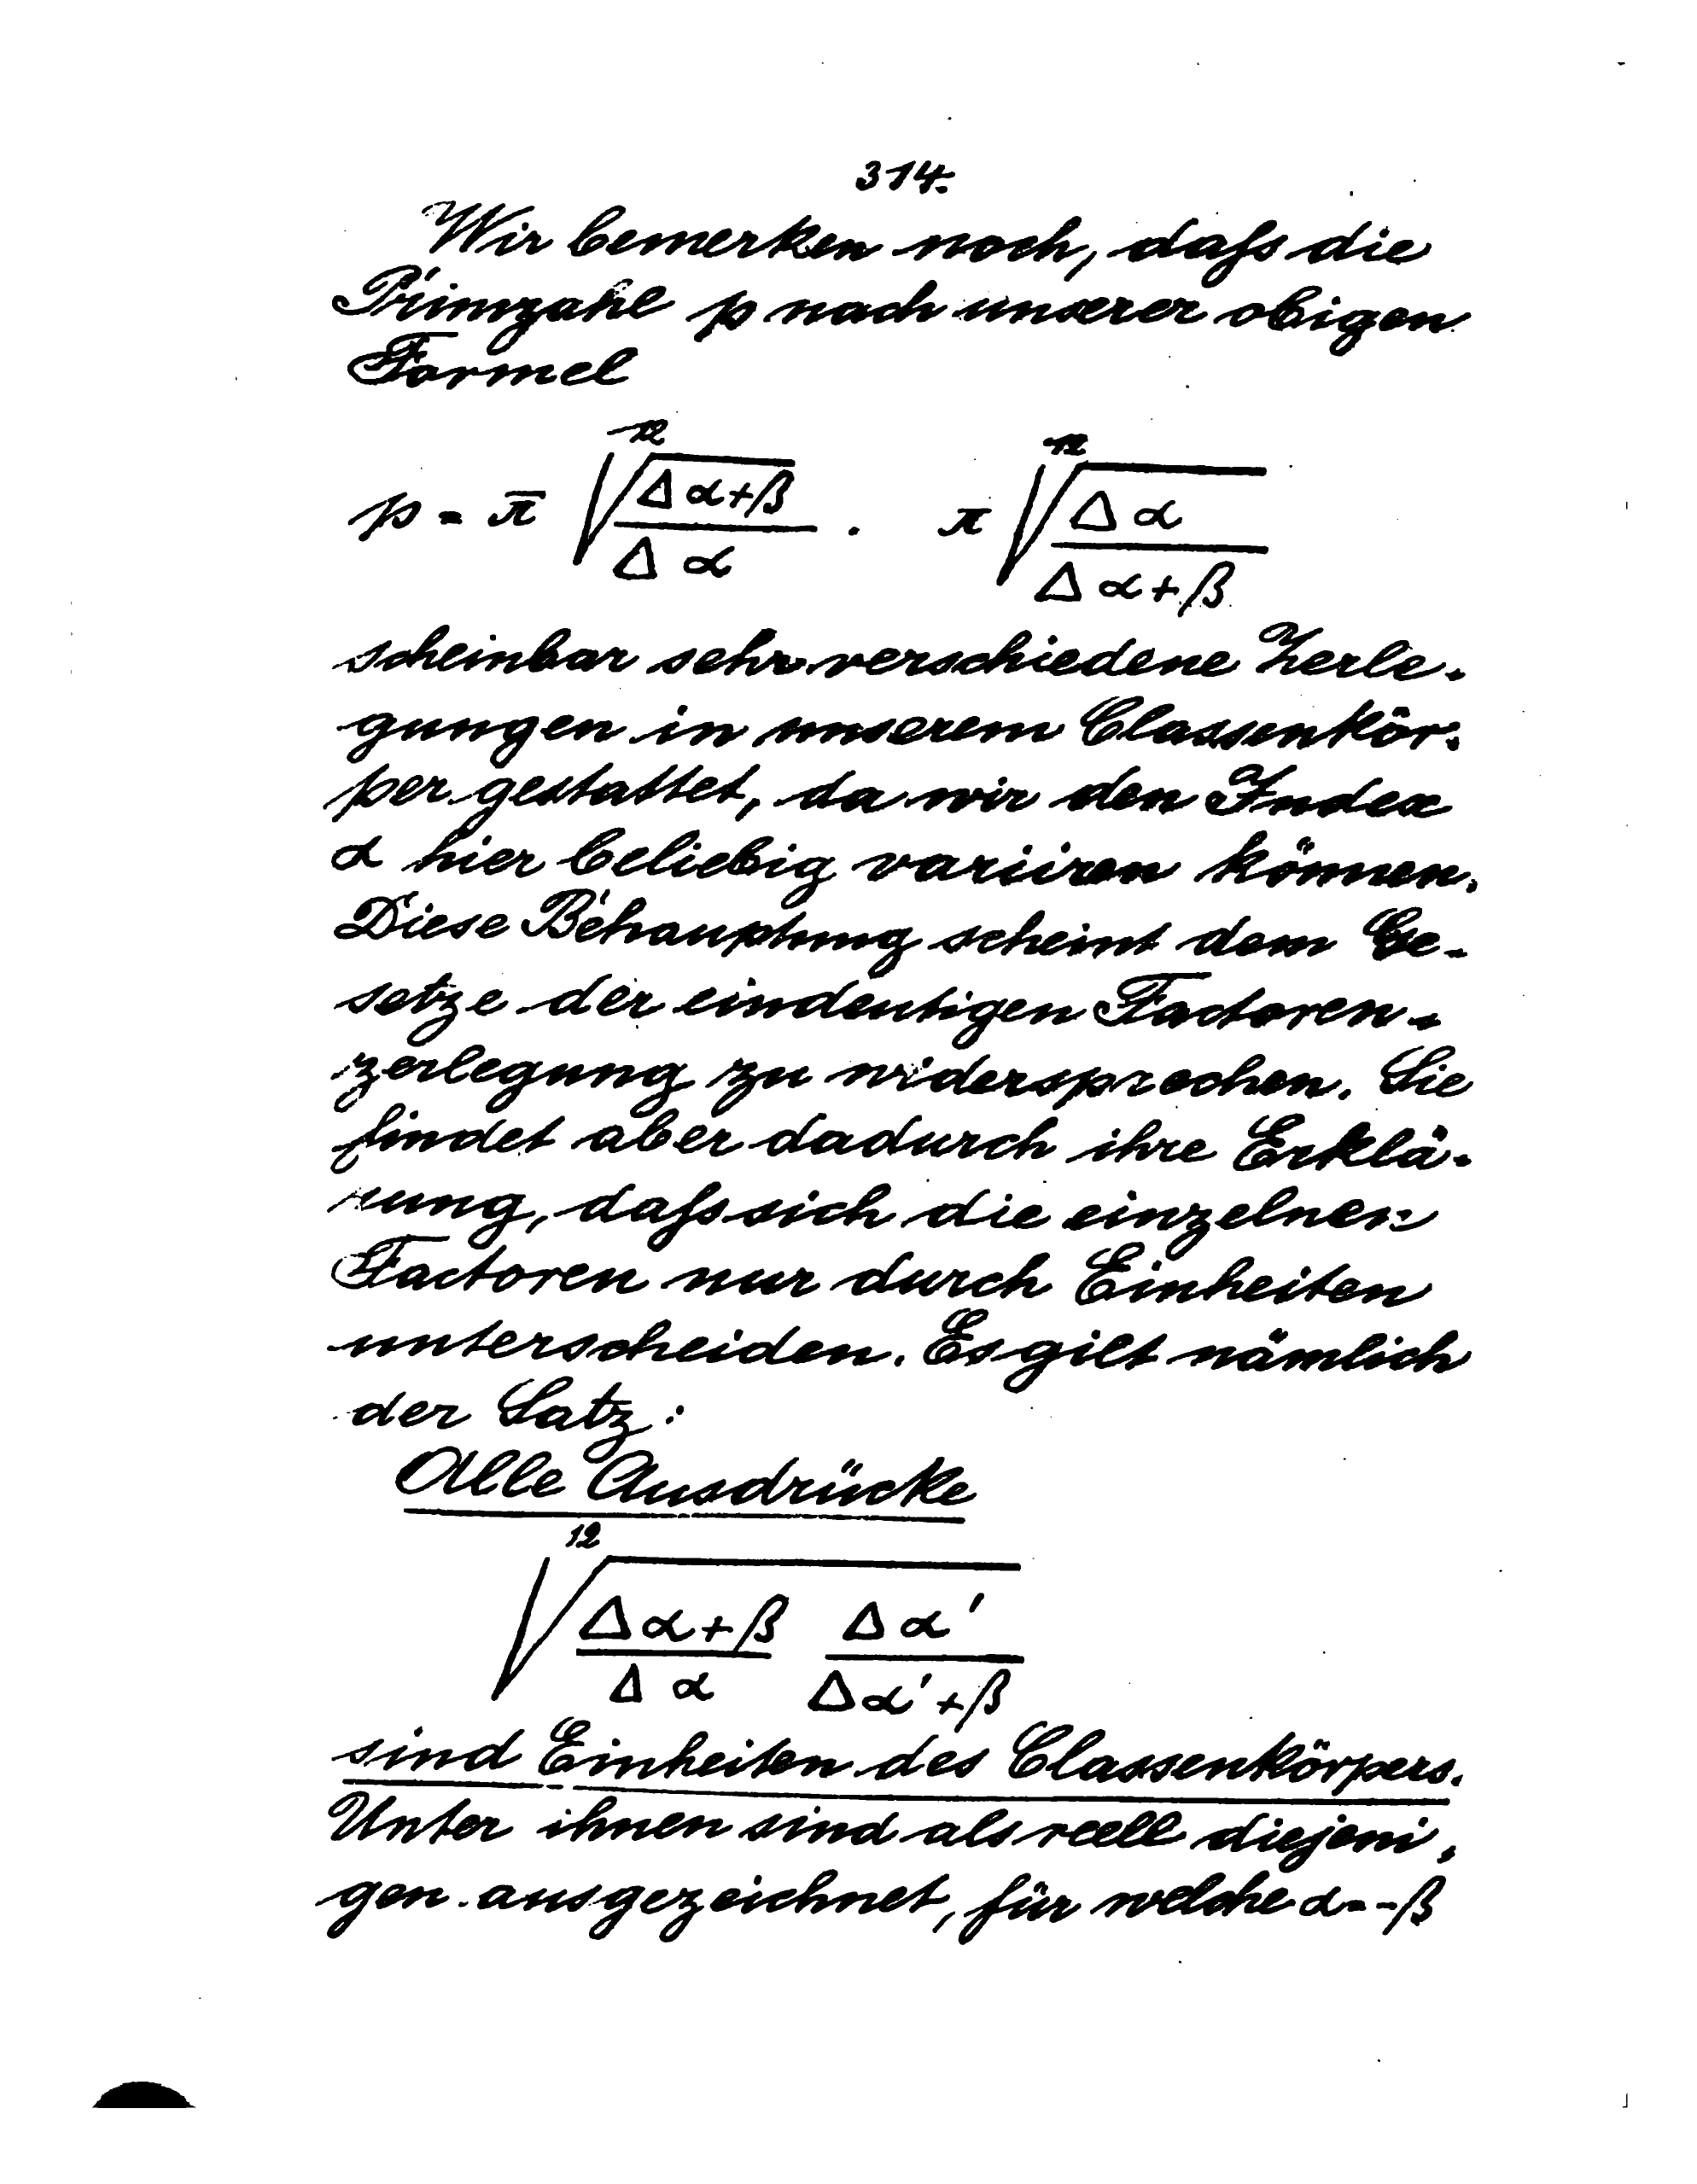 314.
Wir bemerken noch, daſs die
Primzahl p nach unserer obigen
Formel
p = π̄ \sqrt[12]{\frac{Δ α+β}{Δ α}} . π \sqrt[12]{\frac{Δ α}{Δ α+β}}
scheinbar sehr verschiedene Zerle-
gungen in unserem Classenkör-
per gestattet, da wir den Index
α hier beliebig variiren können.
Diese Behauptung scheint dem Ge-
setze der eindeutigen Factoren-
zerlegung zu widersprechen. Sie
findet aber dadurch ihre Erklä-
rung, daſs sich die einzelnen
Factoren nur durch Einheiten
unterscheiden. Es gilt nämlich
der Satz:
Alle Ausdrücke
\sqrt[12]{\frac{Δ α+β}{Δ α} \frac{Δ α'}{Δ α'+β}}
sind Einheiten des Classenkörpers.
Unter ihnen sind als reell diejeni-
gen ausgezeichnet, für welche α=-β